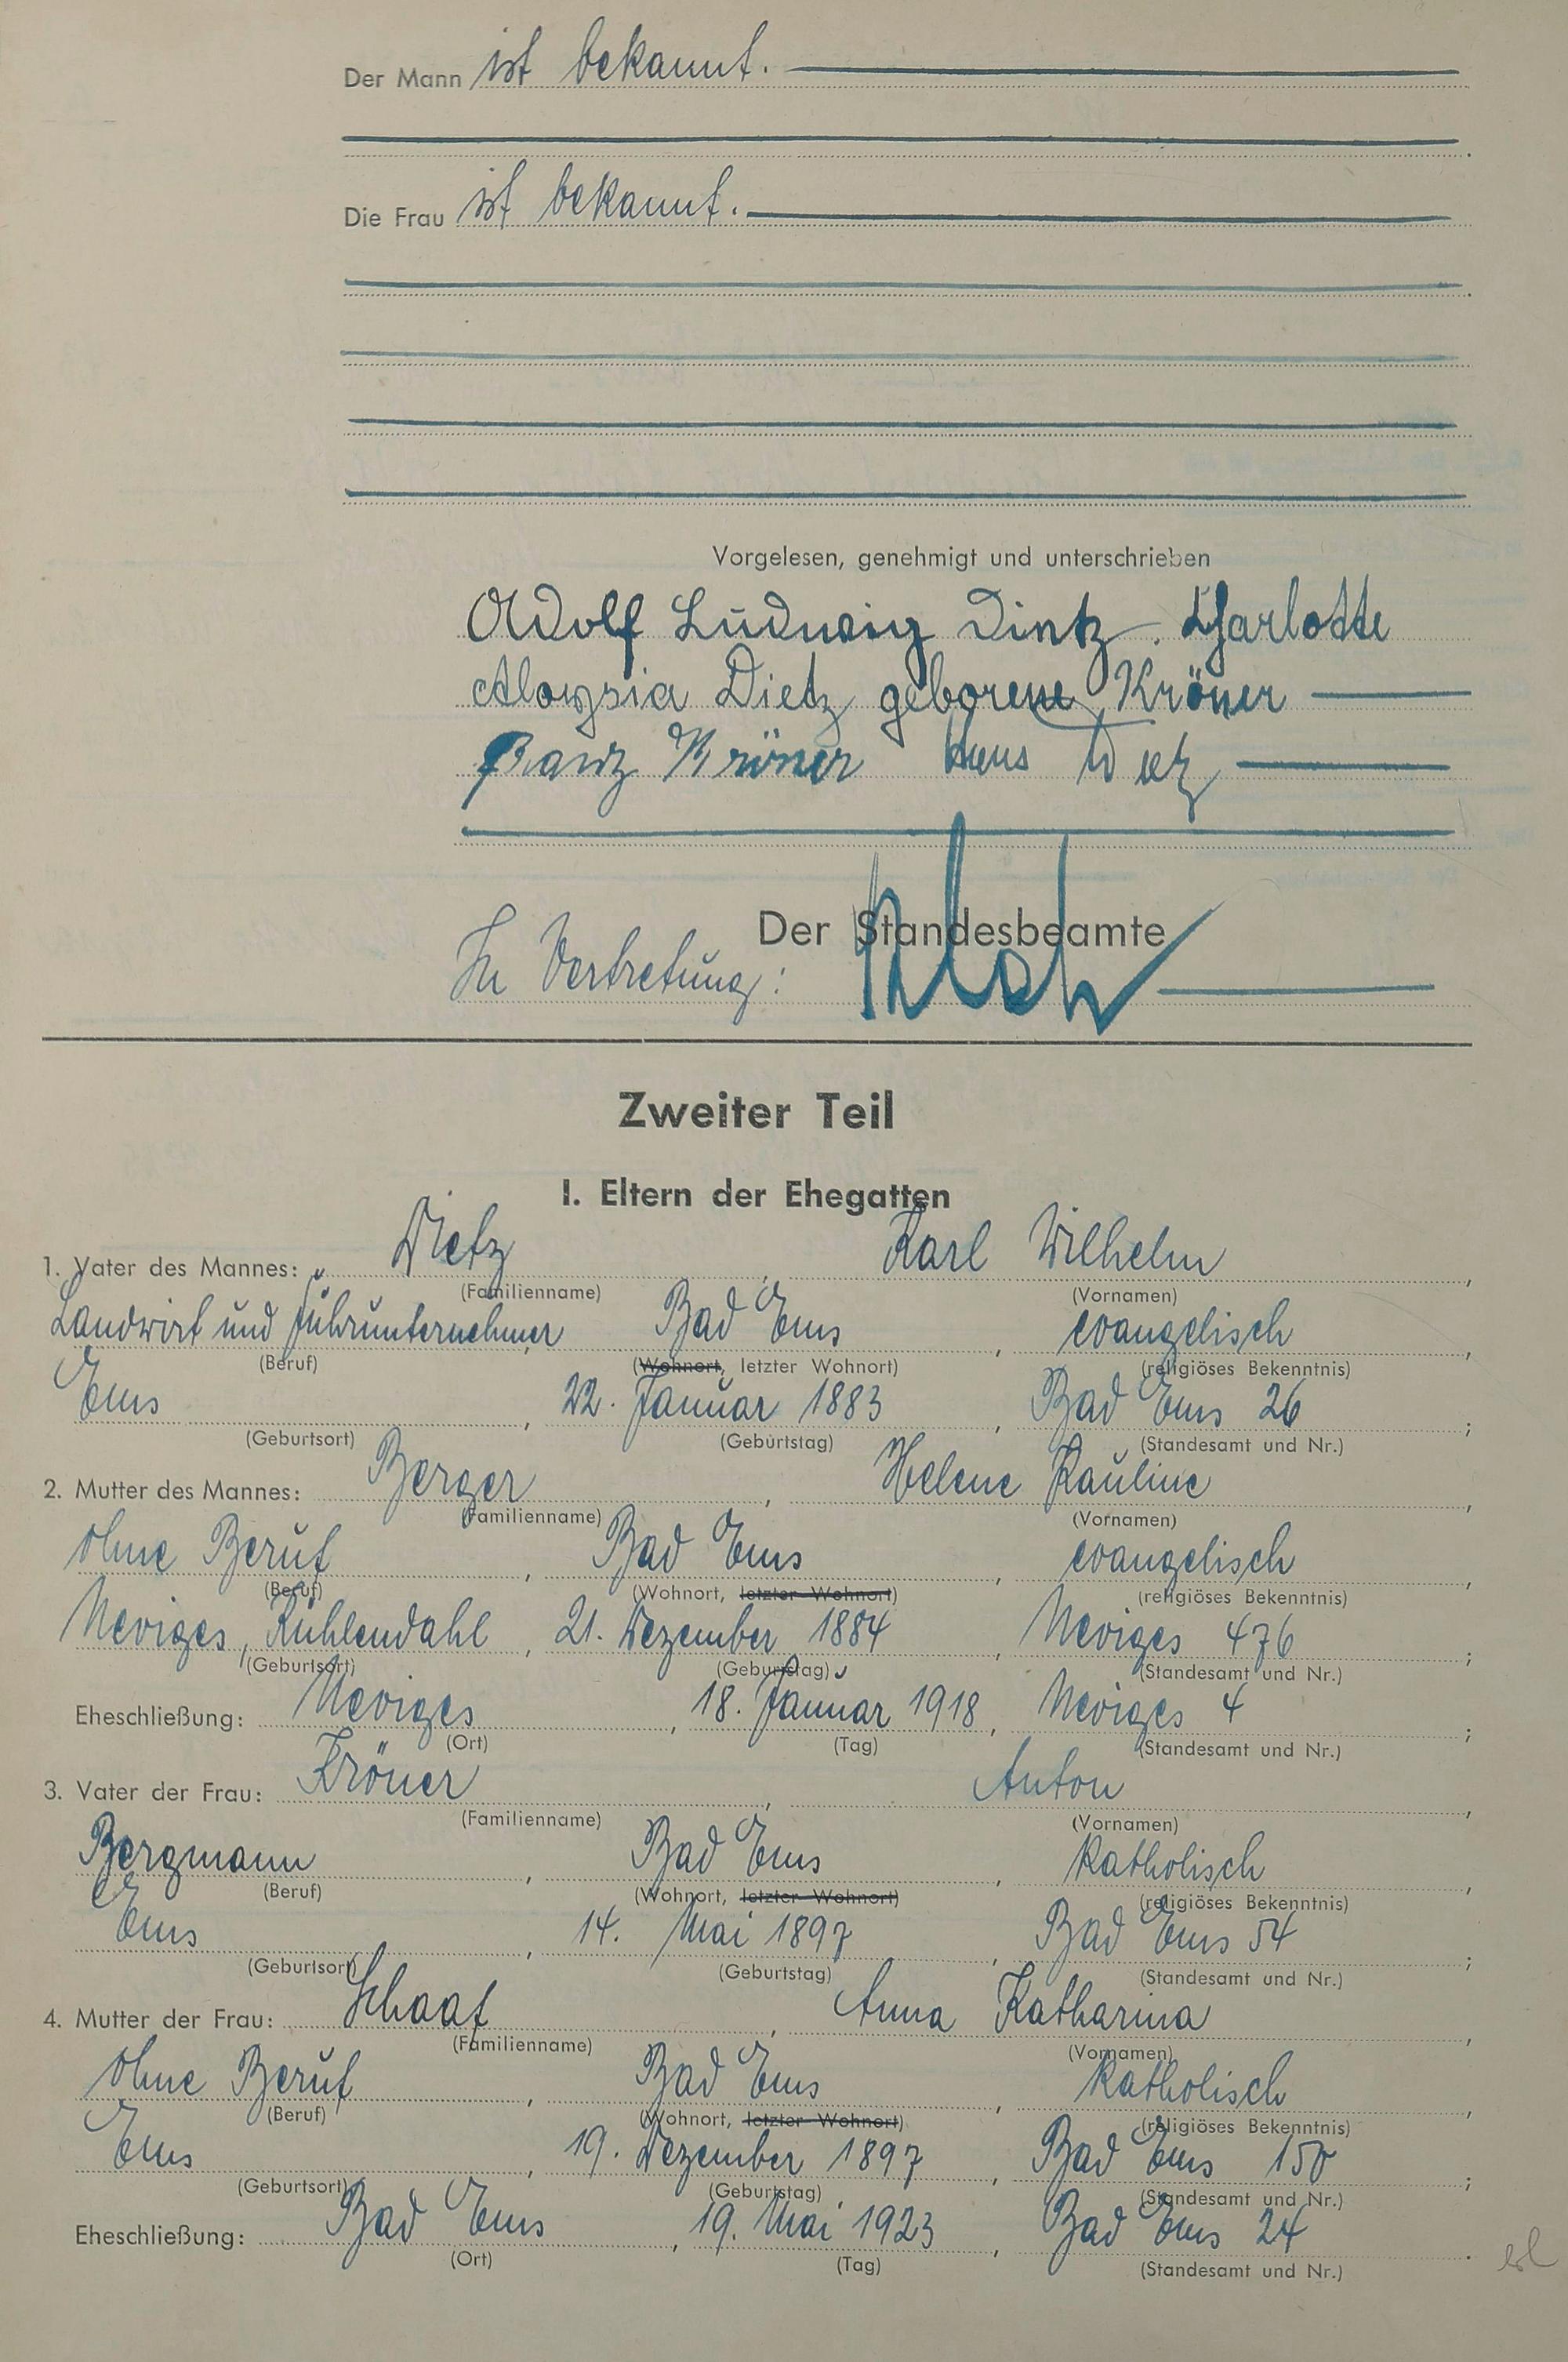 Der Mann ist bekannt.
Die Frau ist bekannt.
Vorgelesen, genehmigt und unterschrieben
Adolf Ludwig Dietz. Charlotte
Aloysia Dietz geborene Kröner
Franz Kröner Hans Dietz
Der Standesbeamte
In Vertretung:
Zweiter Teil
I. Eltern der Ehegatten
1. Vater des Mannes: Dietz, Karl Wilhelm,
(Familienname) (Vornamen)
Landwirt und Fuhrunternehmer, Bad Ems, evangelisch,
(Beruf) (Wohnort, letzter Wohnort) (religiöses Bekenntnis)
Ems, 22. Januar 1883, Bad Ems 26;
(Geburtsort) (Geburtstag) (Standesamt und Nr.)
2. Mutter des Mannes: Berger, Helene Pauline,
(Familienname) (Vornamen)
ohne Beruf, Bad Ems, evangelisch,
(Beruf) (Wohnort, letzter Wohnort) (religiöses Bekenntnis)
Neviges, Kuhlendahl, 21. Dezember 1884, Neviges 476;
(Geburtsort) (Geburtstag) (Standesamt und Nr.)
Eheschließung: Neviges, 18. Januar 1918, Neviges 4;
(Ort) (Tag) (Standesamt und Nr.)
3. Vater der Frau: Kröner, Anton,
(Familienname) (Vornamen)
Bergmann, Bad Ems, katholisch,
(Beruf) (Wohnort, letzter Wohnort) (religiöses Bekenntnis)
Ems, 14. Mai 1897, Bad Ems 54;
(Geburtsort) (Geburtstag) (Standesamt und Nr.)
4. Mutter der Frau: Schaaf, Anna Katharina,
(Familienname) (Vornamen)
ohne Beruf, Bad Ems, katholisch,
(Beruf) (Wohnort, letzter Wohnort) (religiöses Bekenntnis)
Ems, 19. Dezember 1897, Bad Ems 150;
(Geburtsort) (Geburtstag) (Standesamt und Nr.)
Eheschließung: Bad Ems, 19. Mai 1923, Bad Ems 24.
(Ort) (Tag) (Standesamt und Nr.)